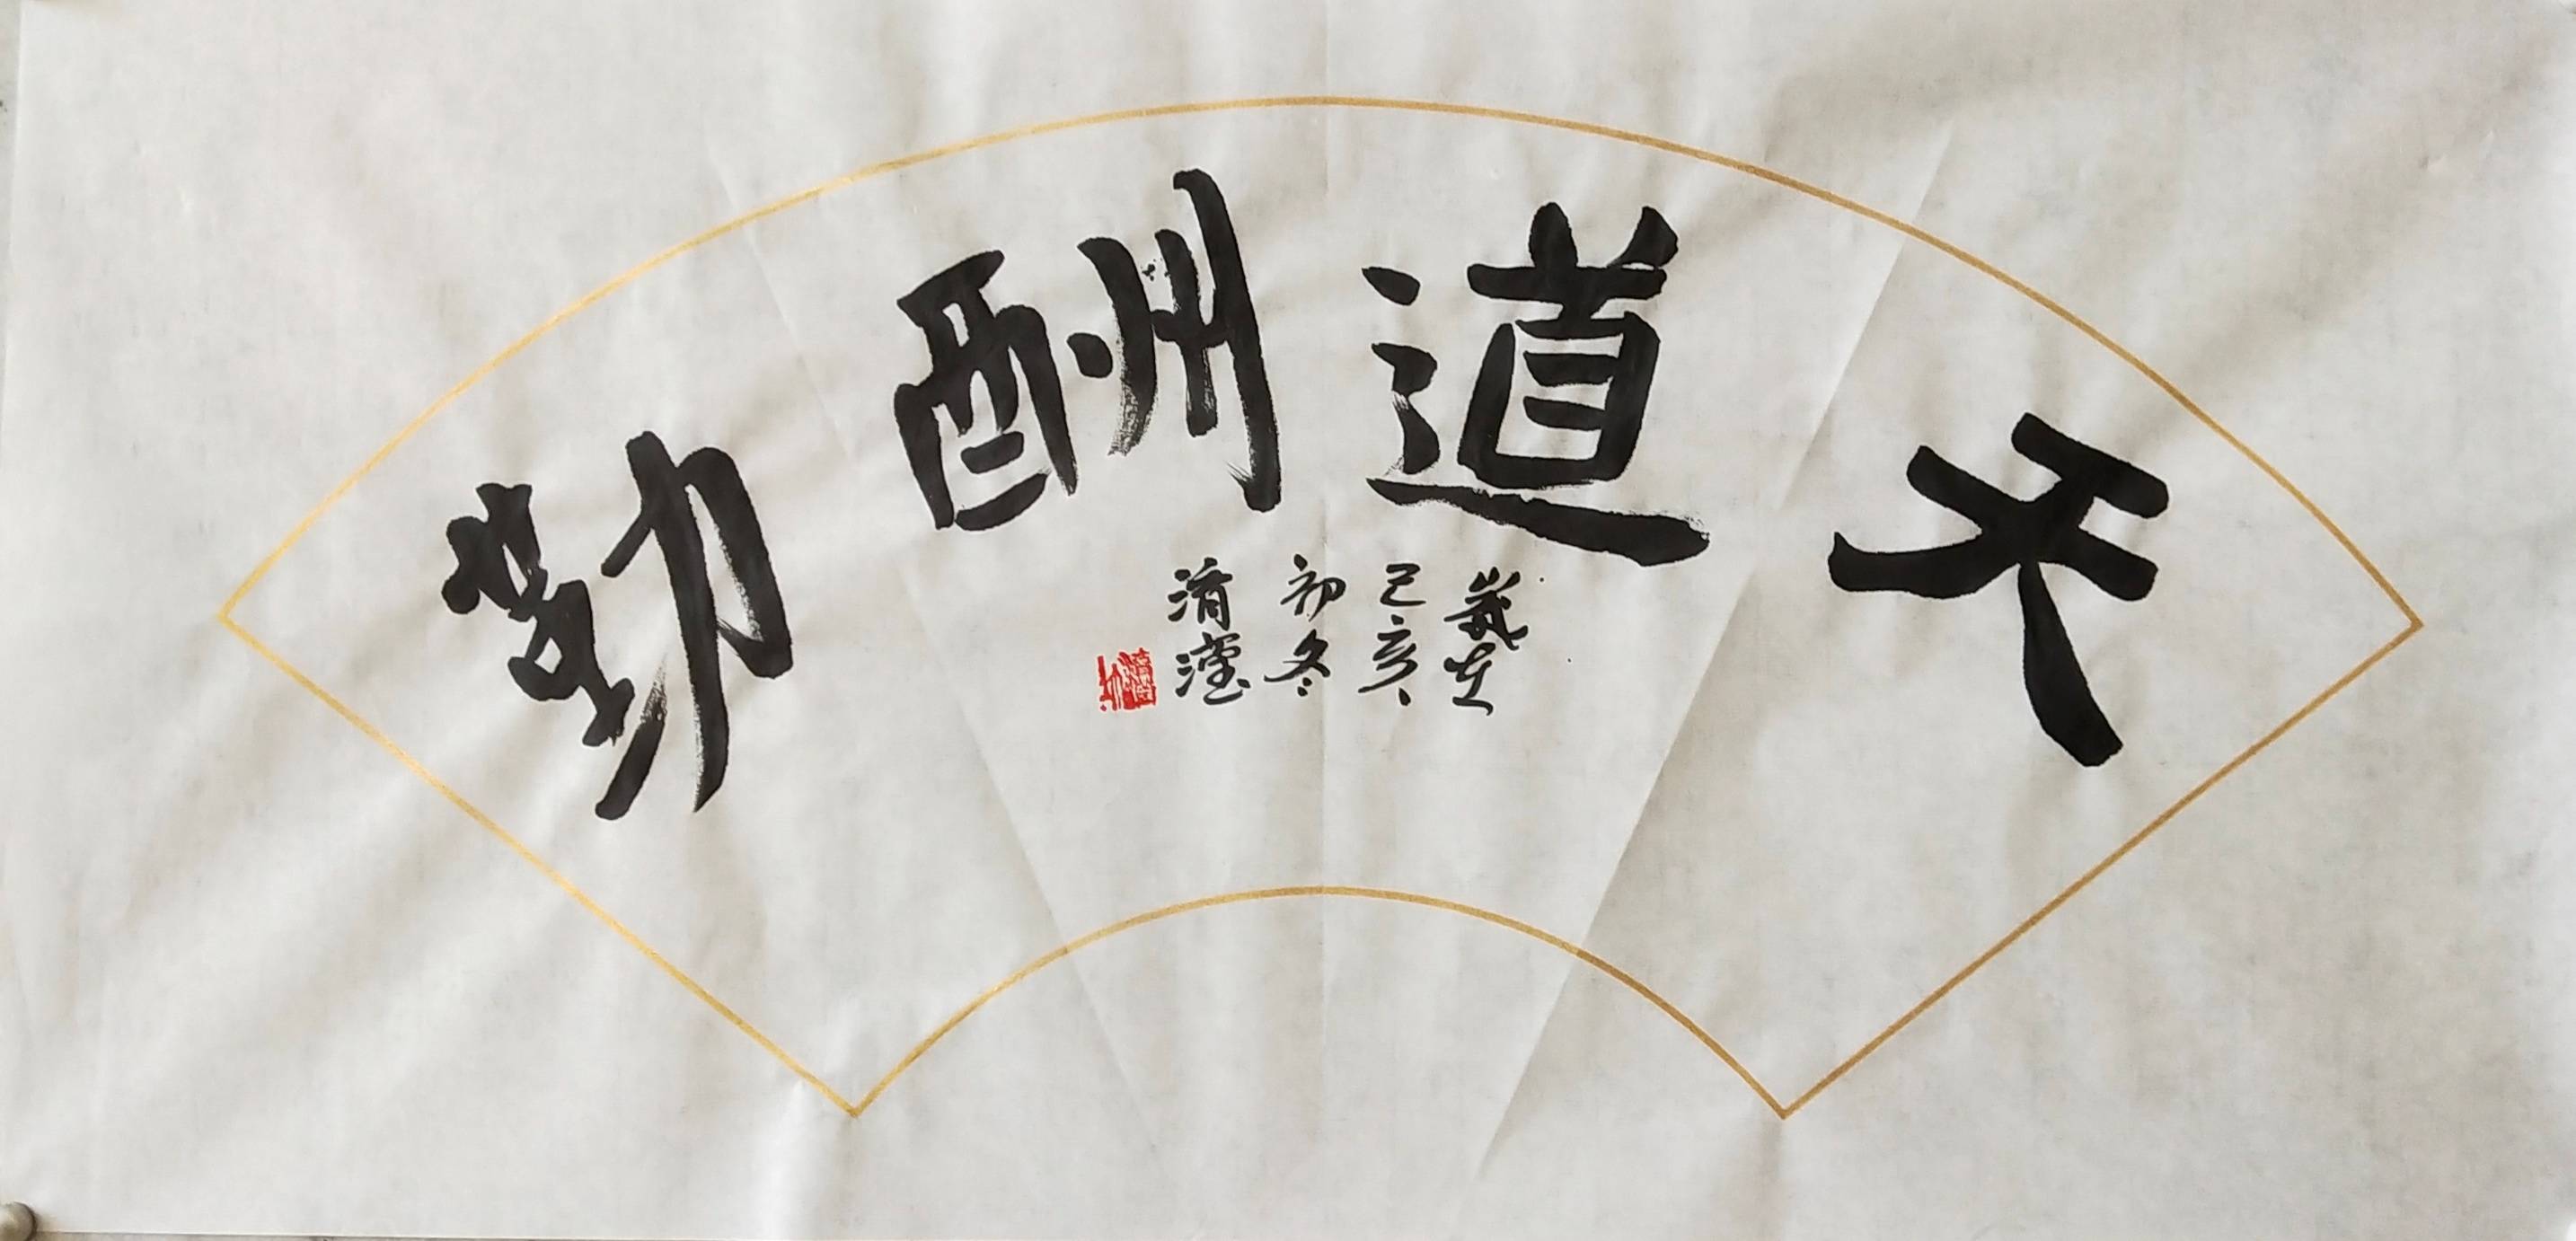 天道酬勤
歲在
己亥
初冬
清瀅